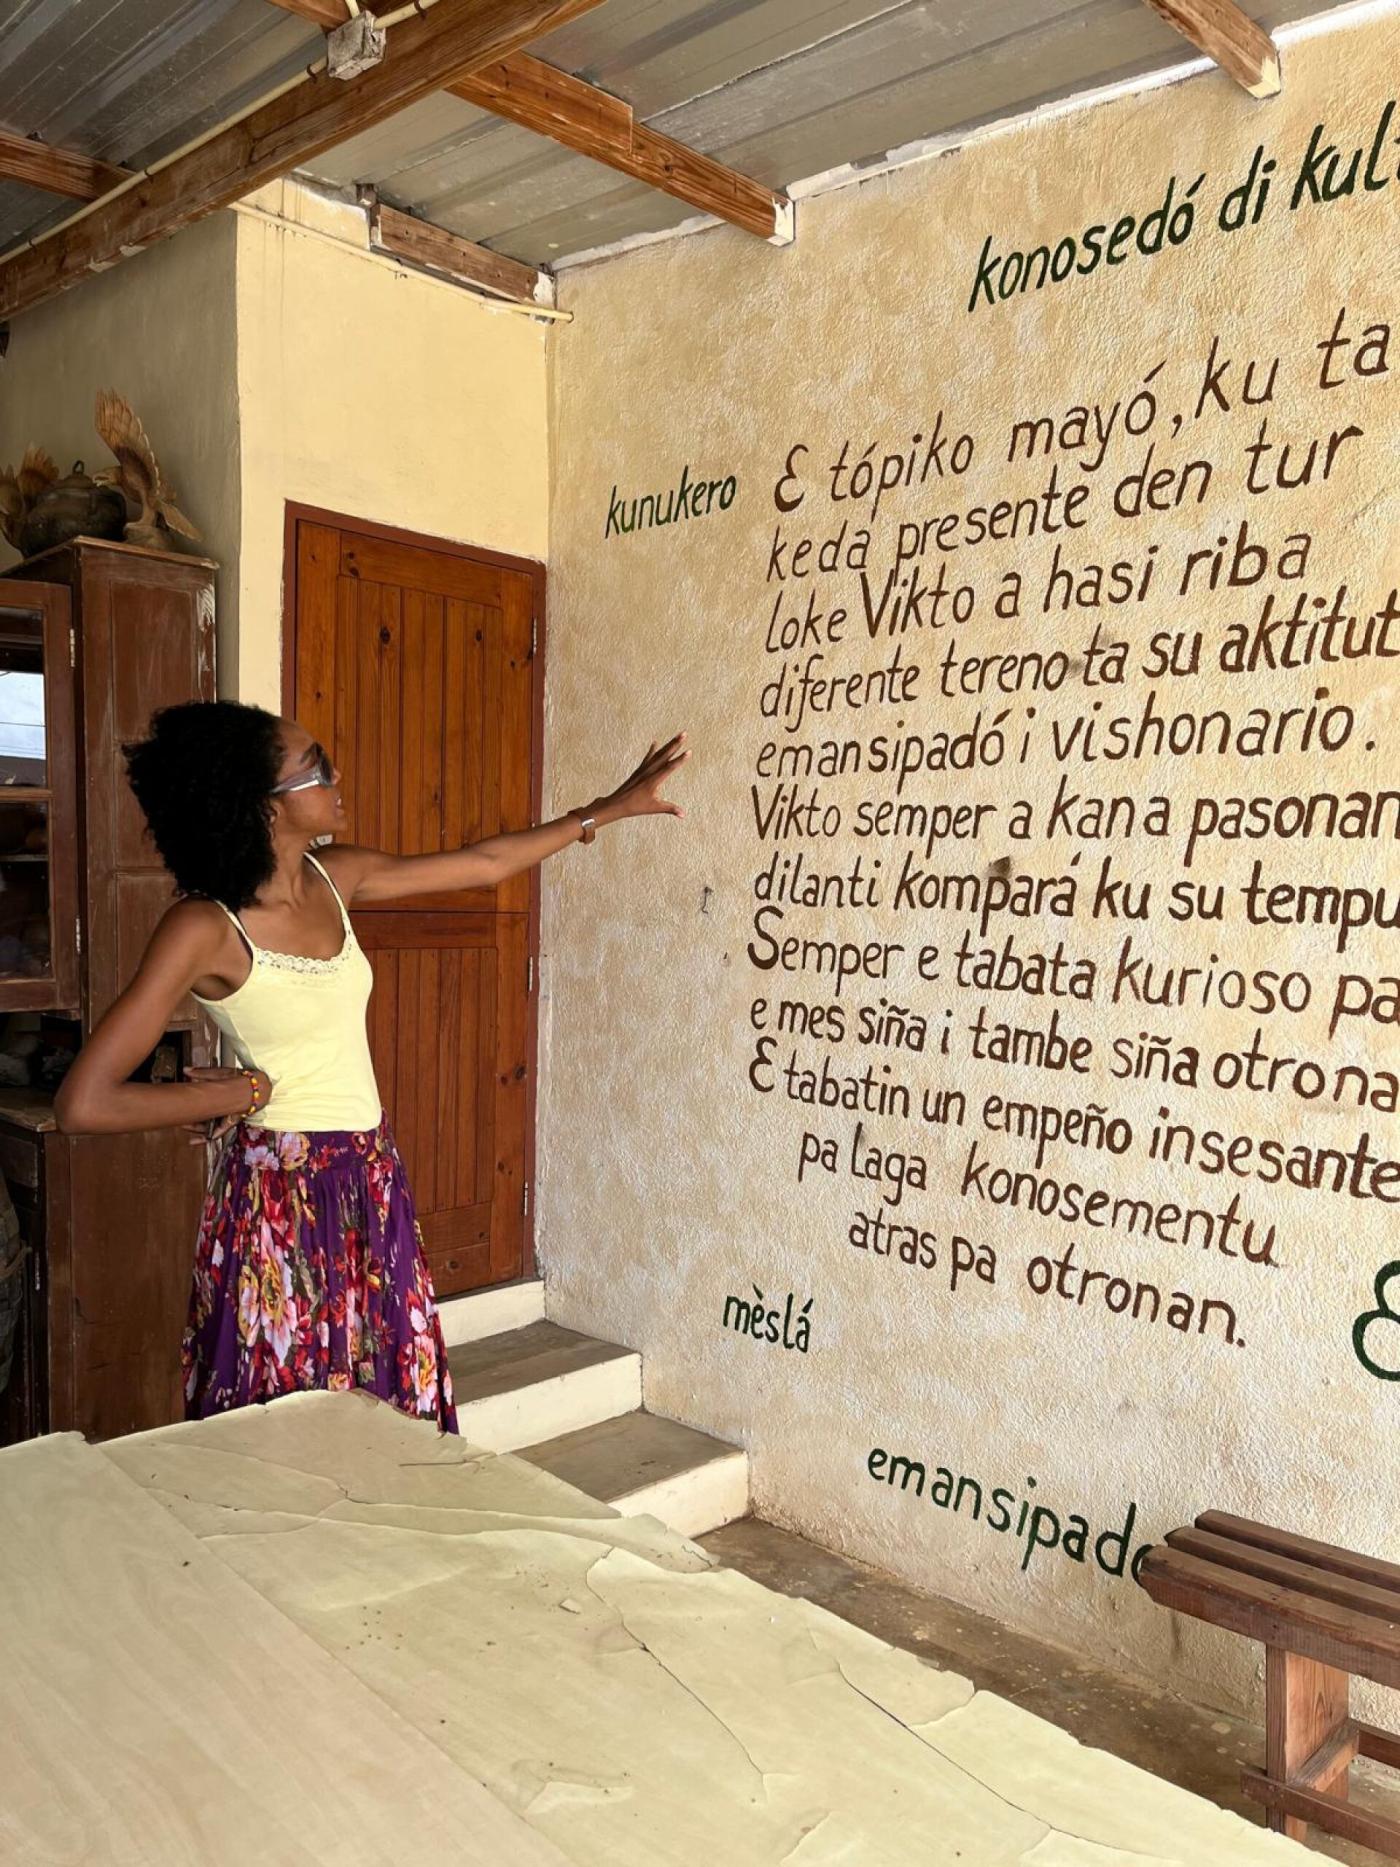 konosedó di
kunukero
E tópiko mayó, ku ta
keda presente den tur
loke Vikto a hasi riba
diferente tereno ta su aktitut
emansipadó i vishonario.
Vikto semper a kana pasonan
dilanti kompará ku su tempu
Semper e tabata kurioso pa
e mes siña i tambe siña otrona
E tabatin un empeño insesante
pa laga konosementu
atras pa otronan.
mèslá
emansipado